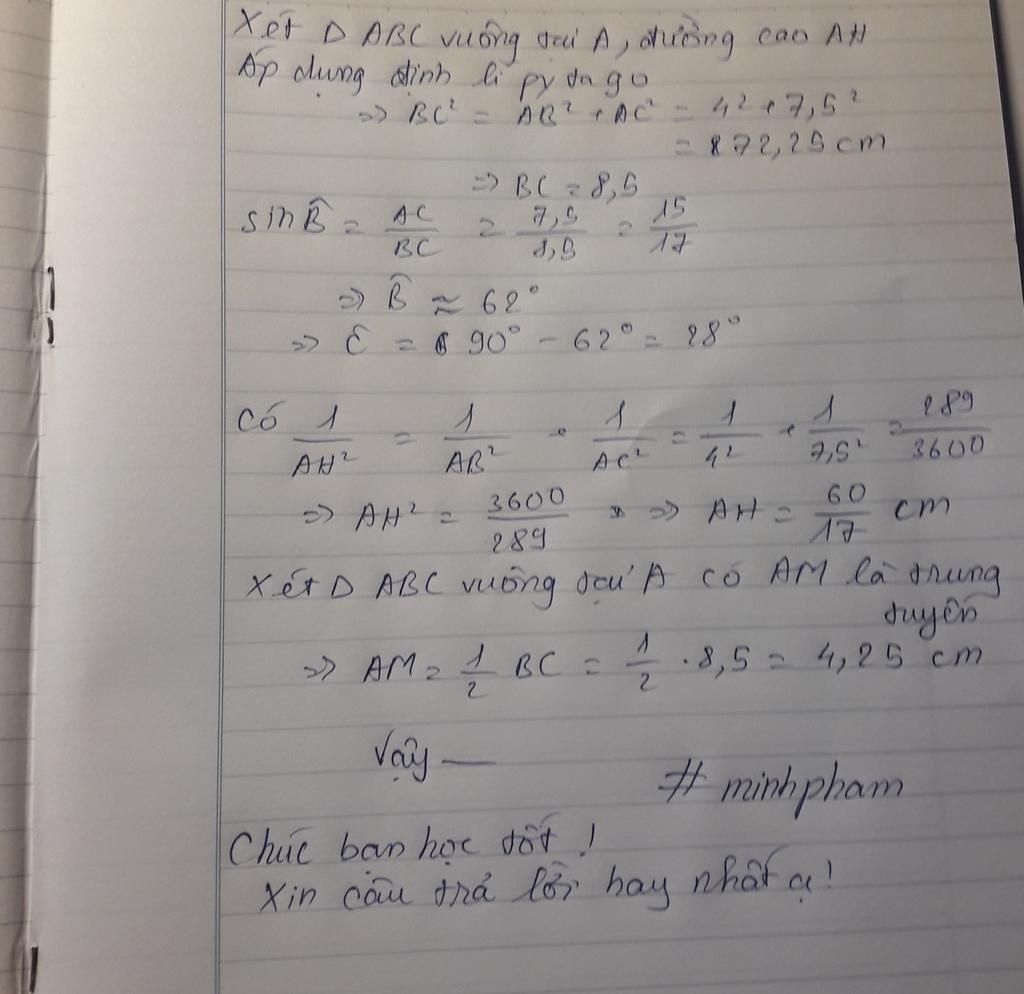 Xét Δ ABC vuông tại A, đường cao AH
Áp dụng định lí pytago
=> BC² = AB² + AC² = 4² + 7,5²
= 72,25 cm
=> BC = 8,5
sin B̂ = AC/BC = 7,5/8,5 = 15/17
=> B̂ ≈ 62°
=> Ĉ = 90° - 62° = 28°
Có 1/AH² = 1/AB² + 1/AC² = 1/4² + 1/7,5² = 289/3600
=> AH² = 3600/289 => AH = 60/17 cm
Xét Δ ABC vuông tại A có AM là trung
tuyến
=> AM = 1/2 BC = 1/2 . 8,5 = 4,25 cm
Vậy —
# minhpham
Chúc bạn học tốt !
Xin câu trả lời hay nhất ạ!